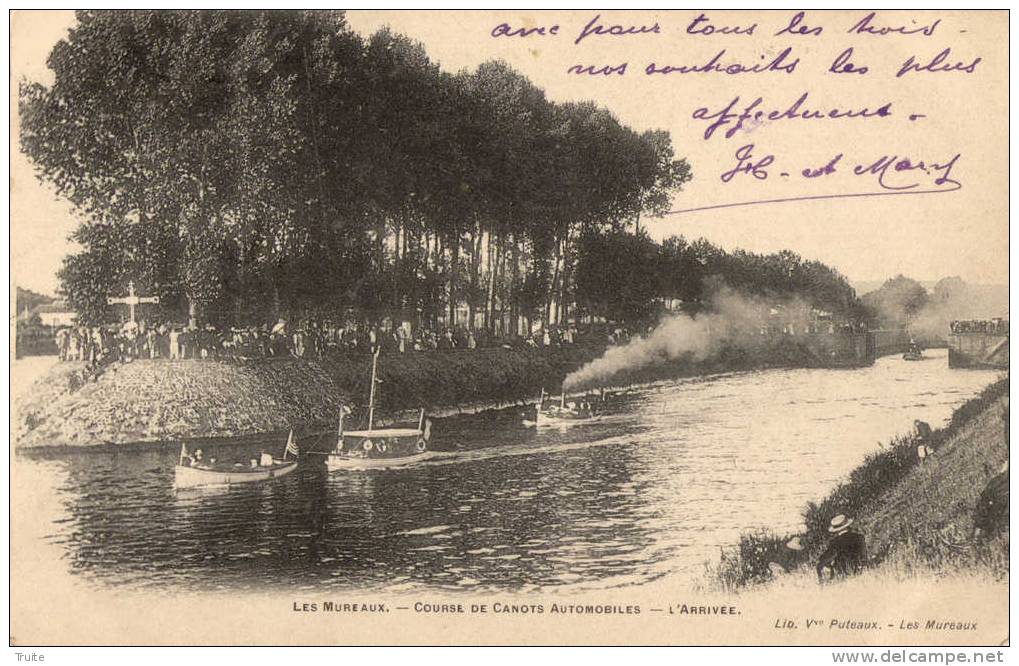 avec pour tous les trois -
nos souhaits les plus
affectueux -
H. et Mary
LES MUREAUX. — COURSE DE CANOTS AUTOMOBILES — L'ARRIVÉE.
Lib. Vve Puteaux. - Les Mureaux
Truite
www.delcampe.net